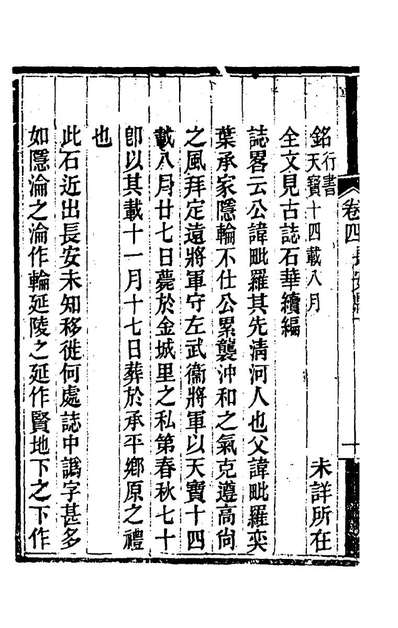 卷四長安縣
銘行書天寶十四載八月 未詳所在
全文見古誌石華續編
誌畧云公諱毗羅其先清河人也父諱毗羅奕
葉承家隱輪不仕公累襲沖和之氣克遵高尙
之風拜定遠將軍守左武衞將軍以天寶十四
載八月廿七日薨於金城里之私第春秋七十
卽以其載十一月十七日葬於承平鄉原之禮
也
此石近出長安未知移徙何處誌中譌字甚多
如隱淪之淪作輪延陵之延作賢地下之下作